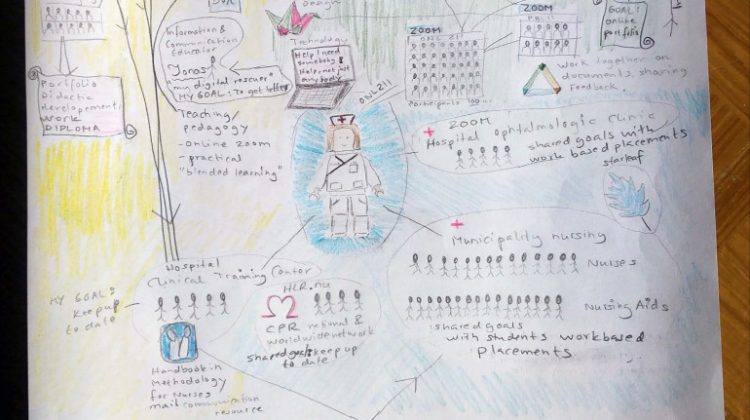 Design
ZOOM
ZOOM
GOAL:
online
portfolio
Information &
Communication
Educator
Jonas
"my digital rescuer"
MY GOAL: To get better
Technology
Help I need
somebody
Help not just
any body
ONL 211
Participants
Work together on
documents, sharing
Feedback.
Portfolio
Didactic
developement
work
DIPLOMA
Teaching/
pedagogy
- online zoom
- practical
"blended learning"
ONL211
+ ZOOM
Hospital Ophtalmologic Clinic
shared goals with
work based placements
starleaf
+
Municipality nursing
Nurses
Nursing Aids
shared goals
with students workbased
placements
Hospital
Clinical Training Center
MY GOAL:
Keep up
to date
HLR.nu
CPR national &
worldwide network
shared goals keep up
to date!
Handbook in
Methodology
for Nurses
mail communication
resource